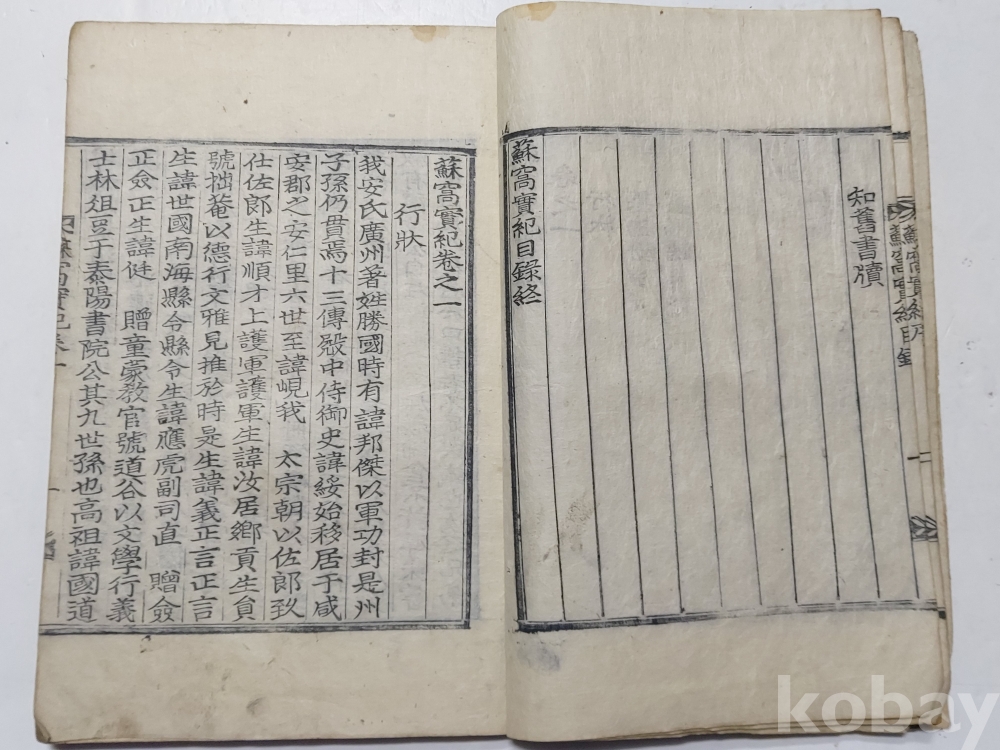 蘇窩實紀目錄
二
知舊書牘
蘇窩實紀目錄終
蘇窩實紀卷之一
行狀
我安氏廣州著姓勝國時有諱邦傑以軍功封是州
子孫仍貫焉十三傳殿中侍御史諱綏始移居于咸
安郡之安仁里六世至諱峴我 太宗朝以佐郎致
仕佐郎生諱順才上護軍護軍生諱汝居鄉貢生負
號拙菴以德行文雅見推於時是生諱義正言正言
生諱世國南海縣令縣令生諱應虎副司直 贈僉
正僉正生諱侹 贈童蒙敎官號道谷以文學行義
士林俎豆于泰陽書院公其九世孫也高祖諱國道
一
kobay